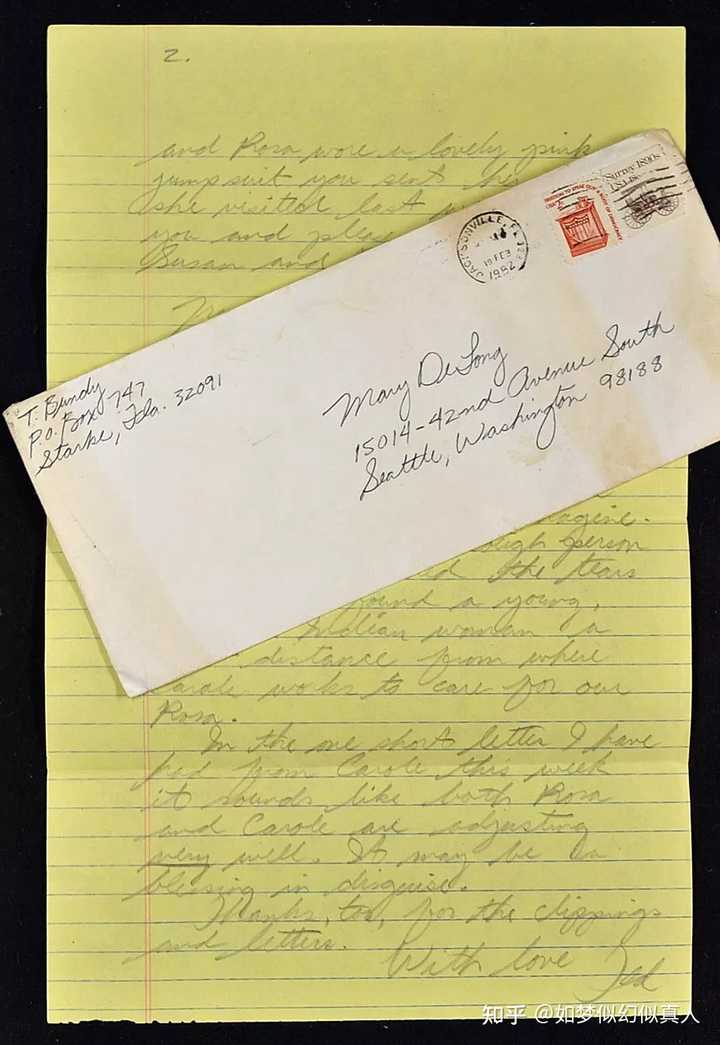 2.
and Rosa wore a lovely pink
jumpsuit you sent her
she visited last
you and please
Susan and
Surrey 1890s
USA 18c
JACKSONVILLE, FL
19 FEB
1982
T. Bundy
P.O. Box 747
Starke, Fla. 32091
Mary DeLong
15014-42nd Avenue South
Seattle, Washington 98188
person
the tears
found a young,
Indian woman a
distance from where
Carole works to care for our
Rosa.
In the one short letter I have
had from Carole this week
it sounds like both Rosa
and Carole are adjusting
very well. It may be a
blessing in disguise.
Thanks, too, for the clippings
and letters.
With love
Ted
知乎 @如梦似幻似真人